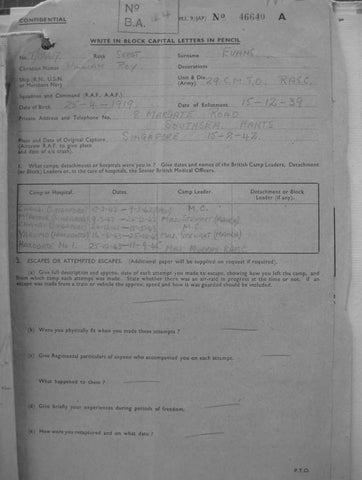 CONFIDENTIAL
No
B.A.
M.I. 9/JAP/ No 46640 A
WRITE IN BLOCK CAPITAL LETTERS IN PENCIL
No. Rank Surname EVANS
Christian Names ROY Decorations
Ship (R.N., U.S.N. or Merchant Navy) Unit & Div. (Army) R.A.S.C.
Squadron and Command (R.A.F., A.A.F.)
Date of Birth 25-4-1919 Date of Enlistment 15-12-39
Private Address and Telephone No. 8 MARGATE ROAD
SOUTHSEA HANTS
Place and Date of Original Capture SINGAPORE 15-2-42.
(Aircrew R.A.F. to give place and date of a/c crash).
1. What camps, detachments or hospitals were you in? Give dates and names of the British Camp Leaders, Detachment
(or Block) Leaders or, in the case of hospitals, the Senior British Medical Officers.
Camp or Hospital. Dates. Camp Leader. Detachment or Block Leader (if any).
M.C.
MAJ. STEWART
M.C.
MAJ. STEWART
HAKODATE No 1. MAJ. R.A.M.C.
2. ESCAPES OR ATTEMPTED ESCAPES. (Additional paper will be supplied on request if required).
(a) Give full description and approx. date of each attempt you made to escape, showing how you left the camp, and
from which camp each attempt was made. State whether there was an air-raid in progress at the time or not. If an
escape was made from a train or vehicle the approx. speed and how it was guarded should be included.
(b) Were you physically fit when you made these attempts?
(c) Give Regimental particulars of anyone who accompanied you on each attempt.
What happened to them?
(d) Give briefly your experiences during periods of freedom.
(e) How were you recaptured and on what date?
P.T.O.